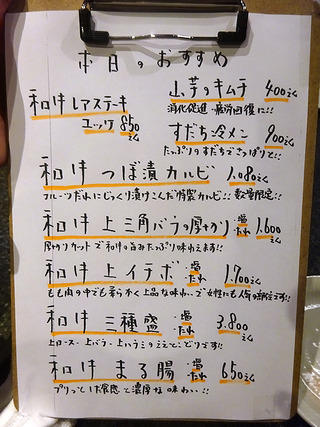 本日のおすすめ
和牛レアステーキ
ユッケ 850えん
山芋のキムチ 400えん
消化促進・疲労回復に!!
すだち冷メン 900えん
たっぷりのすだちでさっぱりと!!
和牛 つぼ漬カルビ 1,080えん
フルーツだれにじっくり漬けこんだ特製カルビ!! 数量限定!!
和牛 上 三角バラの厚切り ・塩 ・たれ 1,600えん
厚切りカットで和牛の旨みたっぷり味わえます!!
和牛 上 イチボ ・塩 ・たれ 1,700えん
もも肉の中でも柔らかく上品な味わいで女性にも人気の部位です!!
和牛 三種盛 ・塩 ・たれ 3,800えん
上ロース・上バラ・上ハラミのええとこどりです!!
和牛 まる腸 ・塩 ・たれ 650えん
プリっとした食感と濃厚な味わい!!